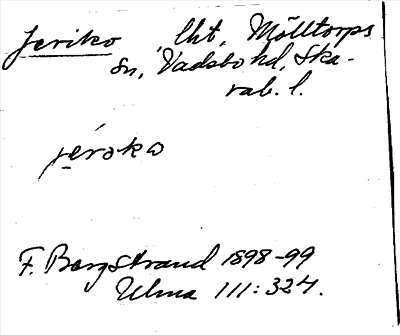 Jeriko, lht, Mölltorps
sn, Vadsbo hd, Ska-
rab. l.
jérəko
F. Bergstrand 1898-99
Ulma 111:324.